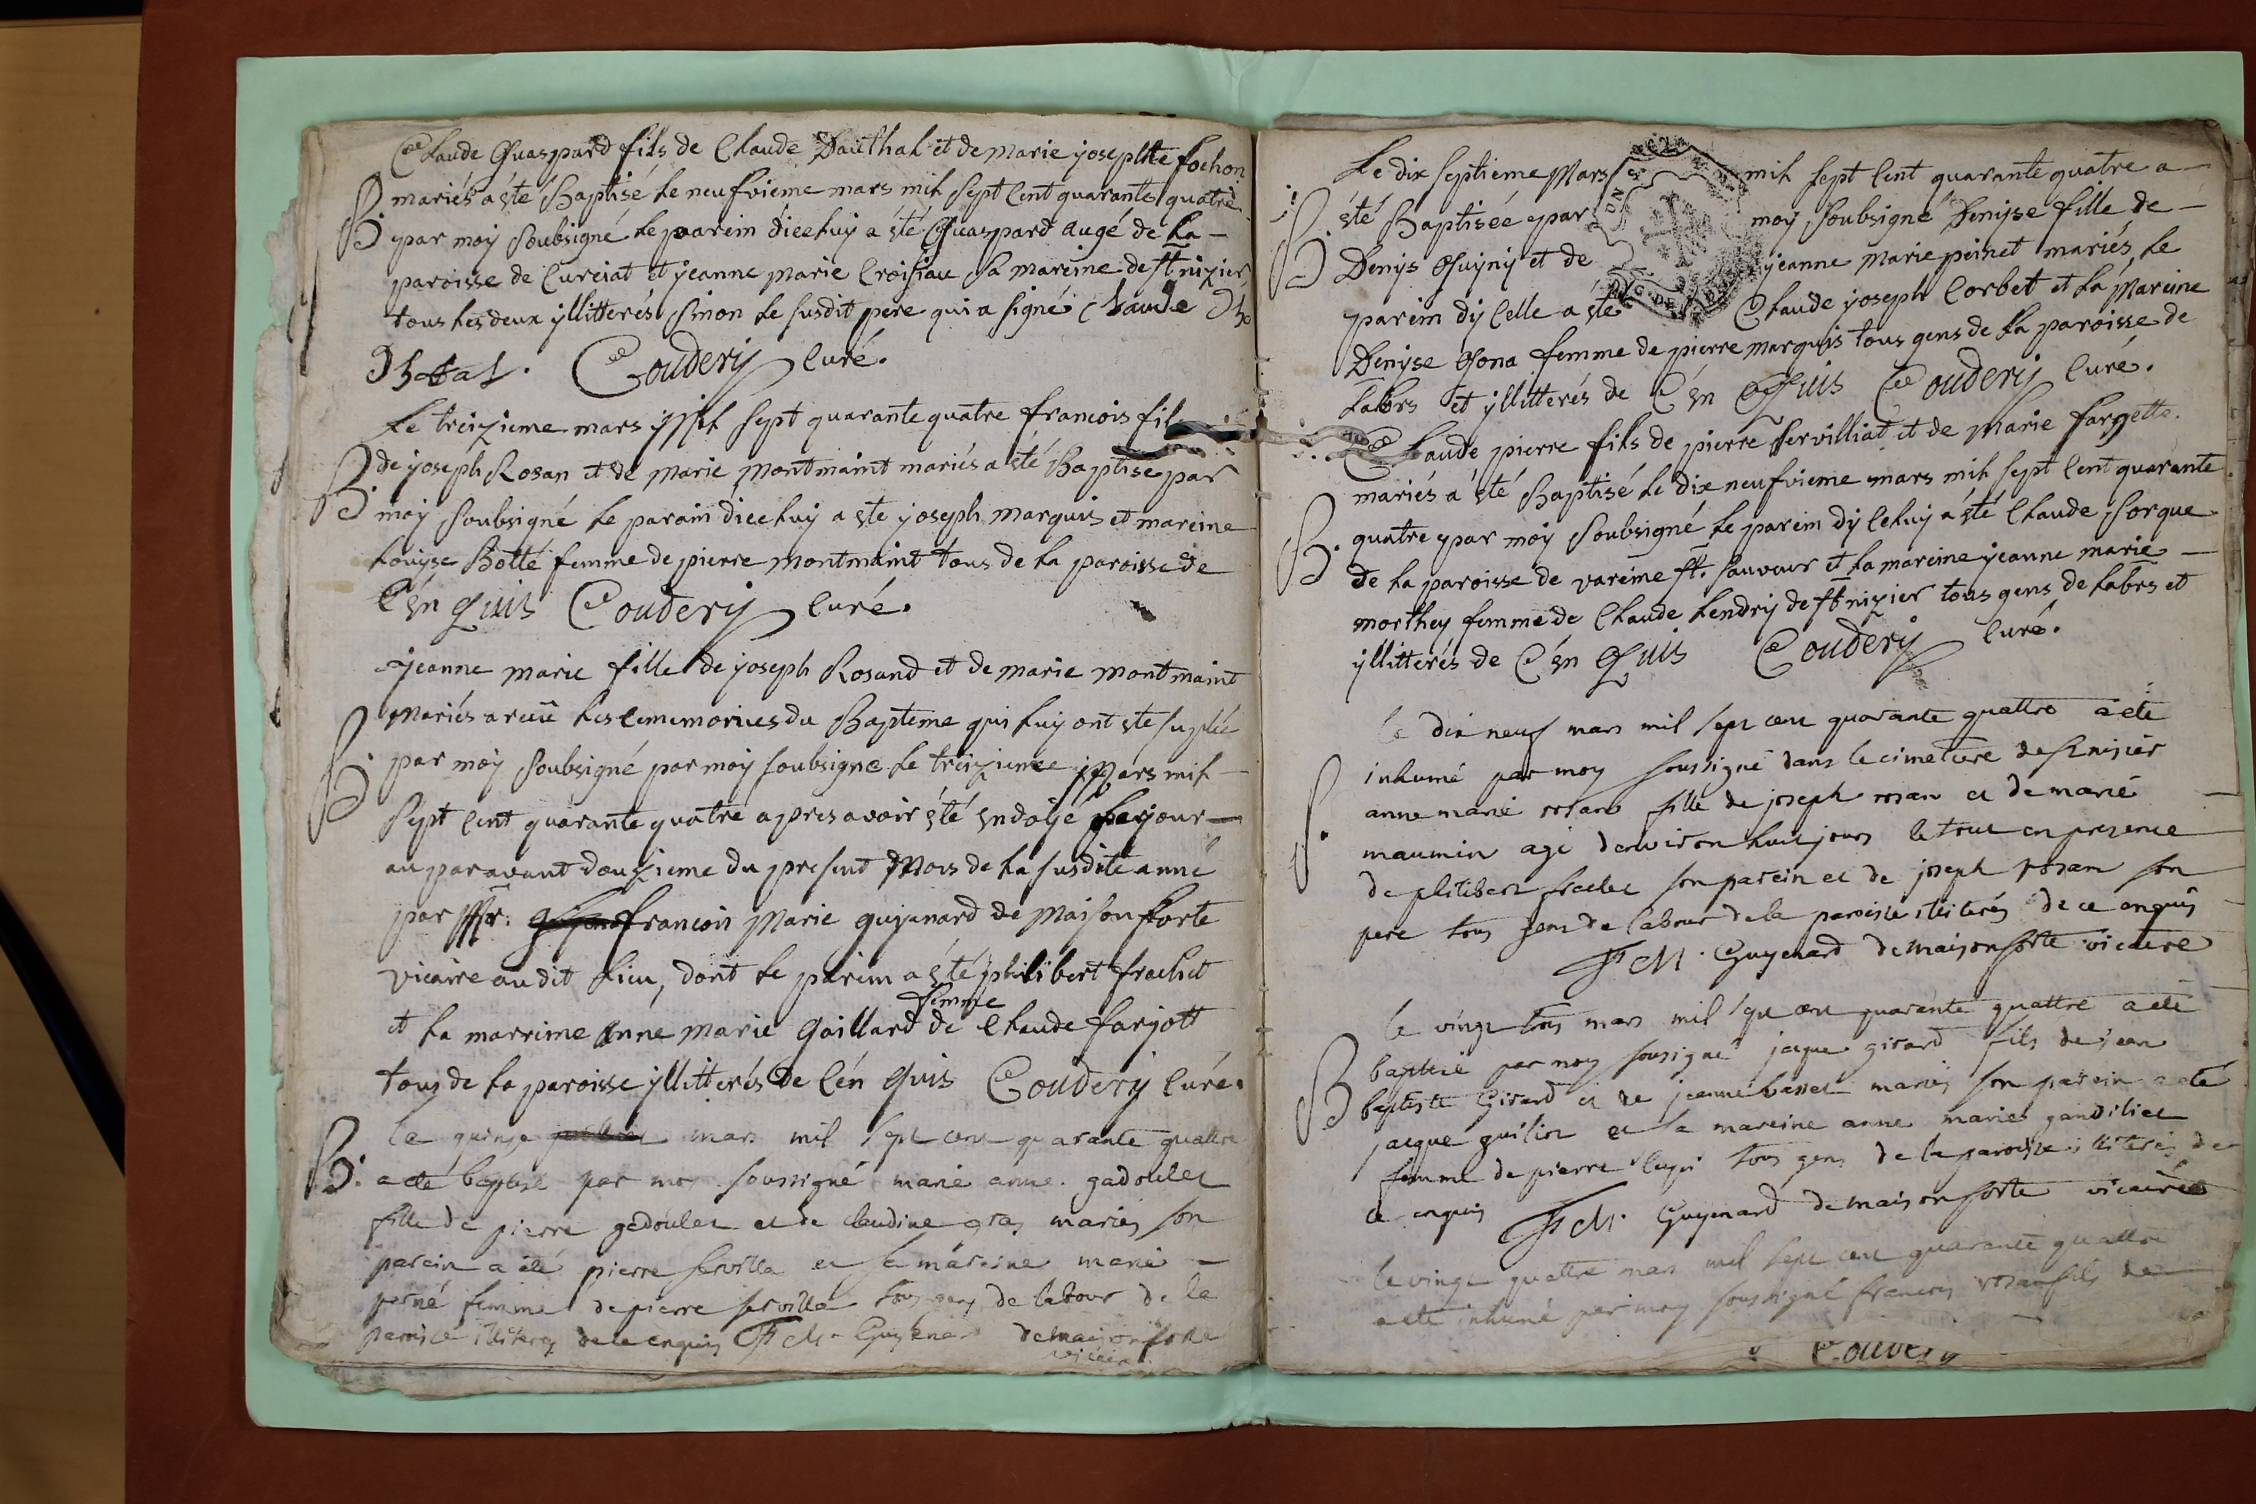 Claude Guaspard fils de Claude Dauthal et de marie josephte fochon
B. mariés a été Baptisé le neufvieme mars mil sept cent quarante quatre
par moÿ soubsigné le parein diceluÿ a été Guaspard augé de la
paroisse de Curciat et jeanne marie Croisiau sa mareine de st nizier
tous les deux ÿllitterés sinon le susdit pere qui a signé Claude
Coudery Curé.
Le treizieme mars Mil sept quarante quatre francois fil
B. de joseph Rosan et de marie montmaint mariés a été Baptise par
moÿ soubsigné le parain diceluÿ a ete joseph marquis et mareine
Louÿse Botté femme de pierre montmaint tous de la paroisse de
C én Quis Coudery Curé.
jeanne marie fille de joseph Rosand et de marie montmaint
B. Mariés a receü les cememories du Bapteme qui luÿ ont ete suplée
par moÿ soubsigné par moÿ soubsigne le treizieme Mars mil
sept cent quarante quatre apres avoir été éndoÿé le jour
au paravant douzieme du present Mois de la susdite anné
par Mr. francois Marie guÿenard de Maison forte
vicaire au dit Lieu, dont le parein a été philibert frachet
femme
et la marreine Anne marie Gaillard de Claude farjott
tous de la paroisse ÿllitterés de Cén Quis Coudery Curé.
Le quinze mars mil sept cent quarante quattre
B. a eté baptisé par moy soussigné marie anne gadoulet
fille de pierre gadoulet et de claudine gras mariés son
parein a été pierre servilla et sa mareine marie
perné femme de pierre servilla tous gens de labour de la
paroisse illiteres de ce enquis F M. Guyenard de maison forte
vicaire
Le dix septieme Mars mil sept Cent quarante quatre a
B. été Baptisée par moÿ soubsigné Denÿse fille de
Denÿs Guÿnÿ et de jeanne Marie peinet mariés, le
parein dÿ Celle a été Claude joseph Corbet et la Mareine
Denÿse Gona femme de pierre marquis tous gens de la paroisse de
Labrs et ÿllitterés de C én Quis Coudery Curé.
Claude pierre fils de pierre servilliat et de Marie fargette
mariés a été Baptisé le dix neufvieme mars mil sept Cent quarante
B. quatre par moÿ soubsigné le parein dÿ Celuÿ a été Claude sorgue
de la paroisse de vareine st. sauveur et la mareine jeanne marie
morthey femme de Claude Lendrÿ de st nizier tous gens de Labrs et
ÿllitterés de C én Quis Coudery Curé.
le dix neuf mars mil sept cent quarante quattre a été
inhumé par moy soussigné dans le cimetiere de st nisier
S. anne marie rosan fille de joseph rosan et de marie
maumin agé denviron huit jours le tout en presence
de philibert frachet son parein et de joseph rosam son
pere tous gens de labour de la paroisse illiterés de ce enquis
F M. Guyenard de maison forte vicaire
le vingt trois mars mil sept cent quarante quattre a eté
B baptisé par moy sousigné jaque girard fils de jean
baptiste Girard et de jeanne basset mariés son parein a eté
jacque guilin et sa mareine anne marie gandiliet
femme de pierre tous gens de la paroisse illiterés de
ce enquis F M. Guyenard de maison forte vicaire
le vingt quattre mars mil sept cent quarante quattre
a été inhumé par moy soussigné francois rosan fils de